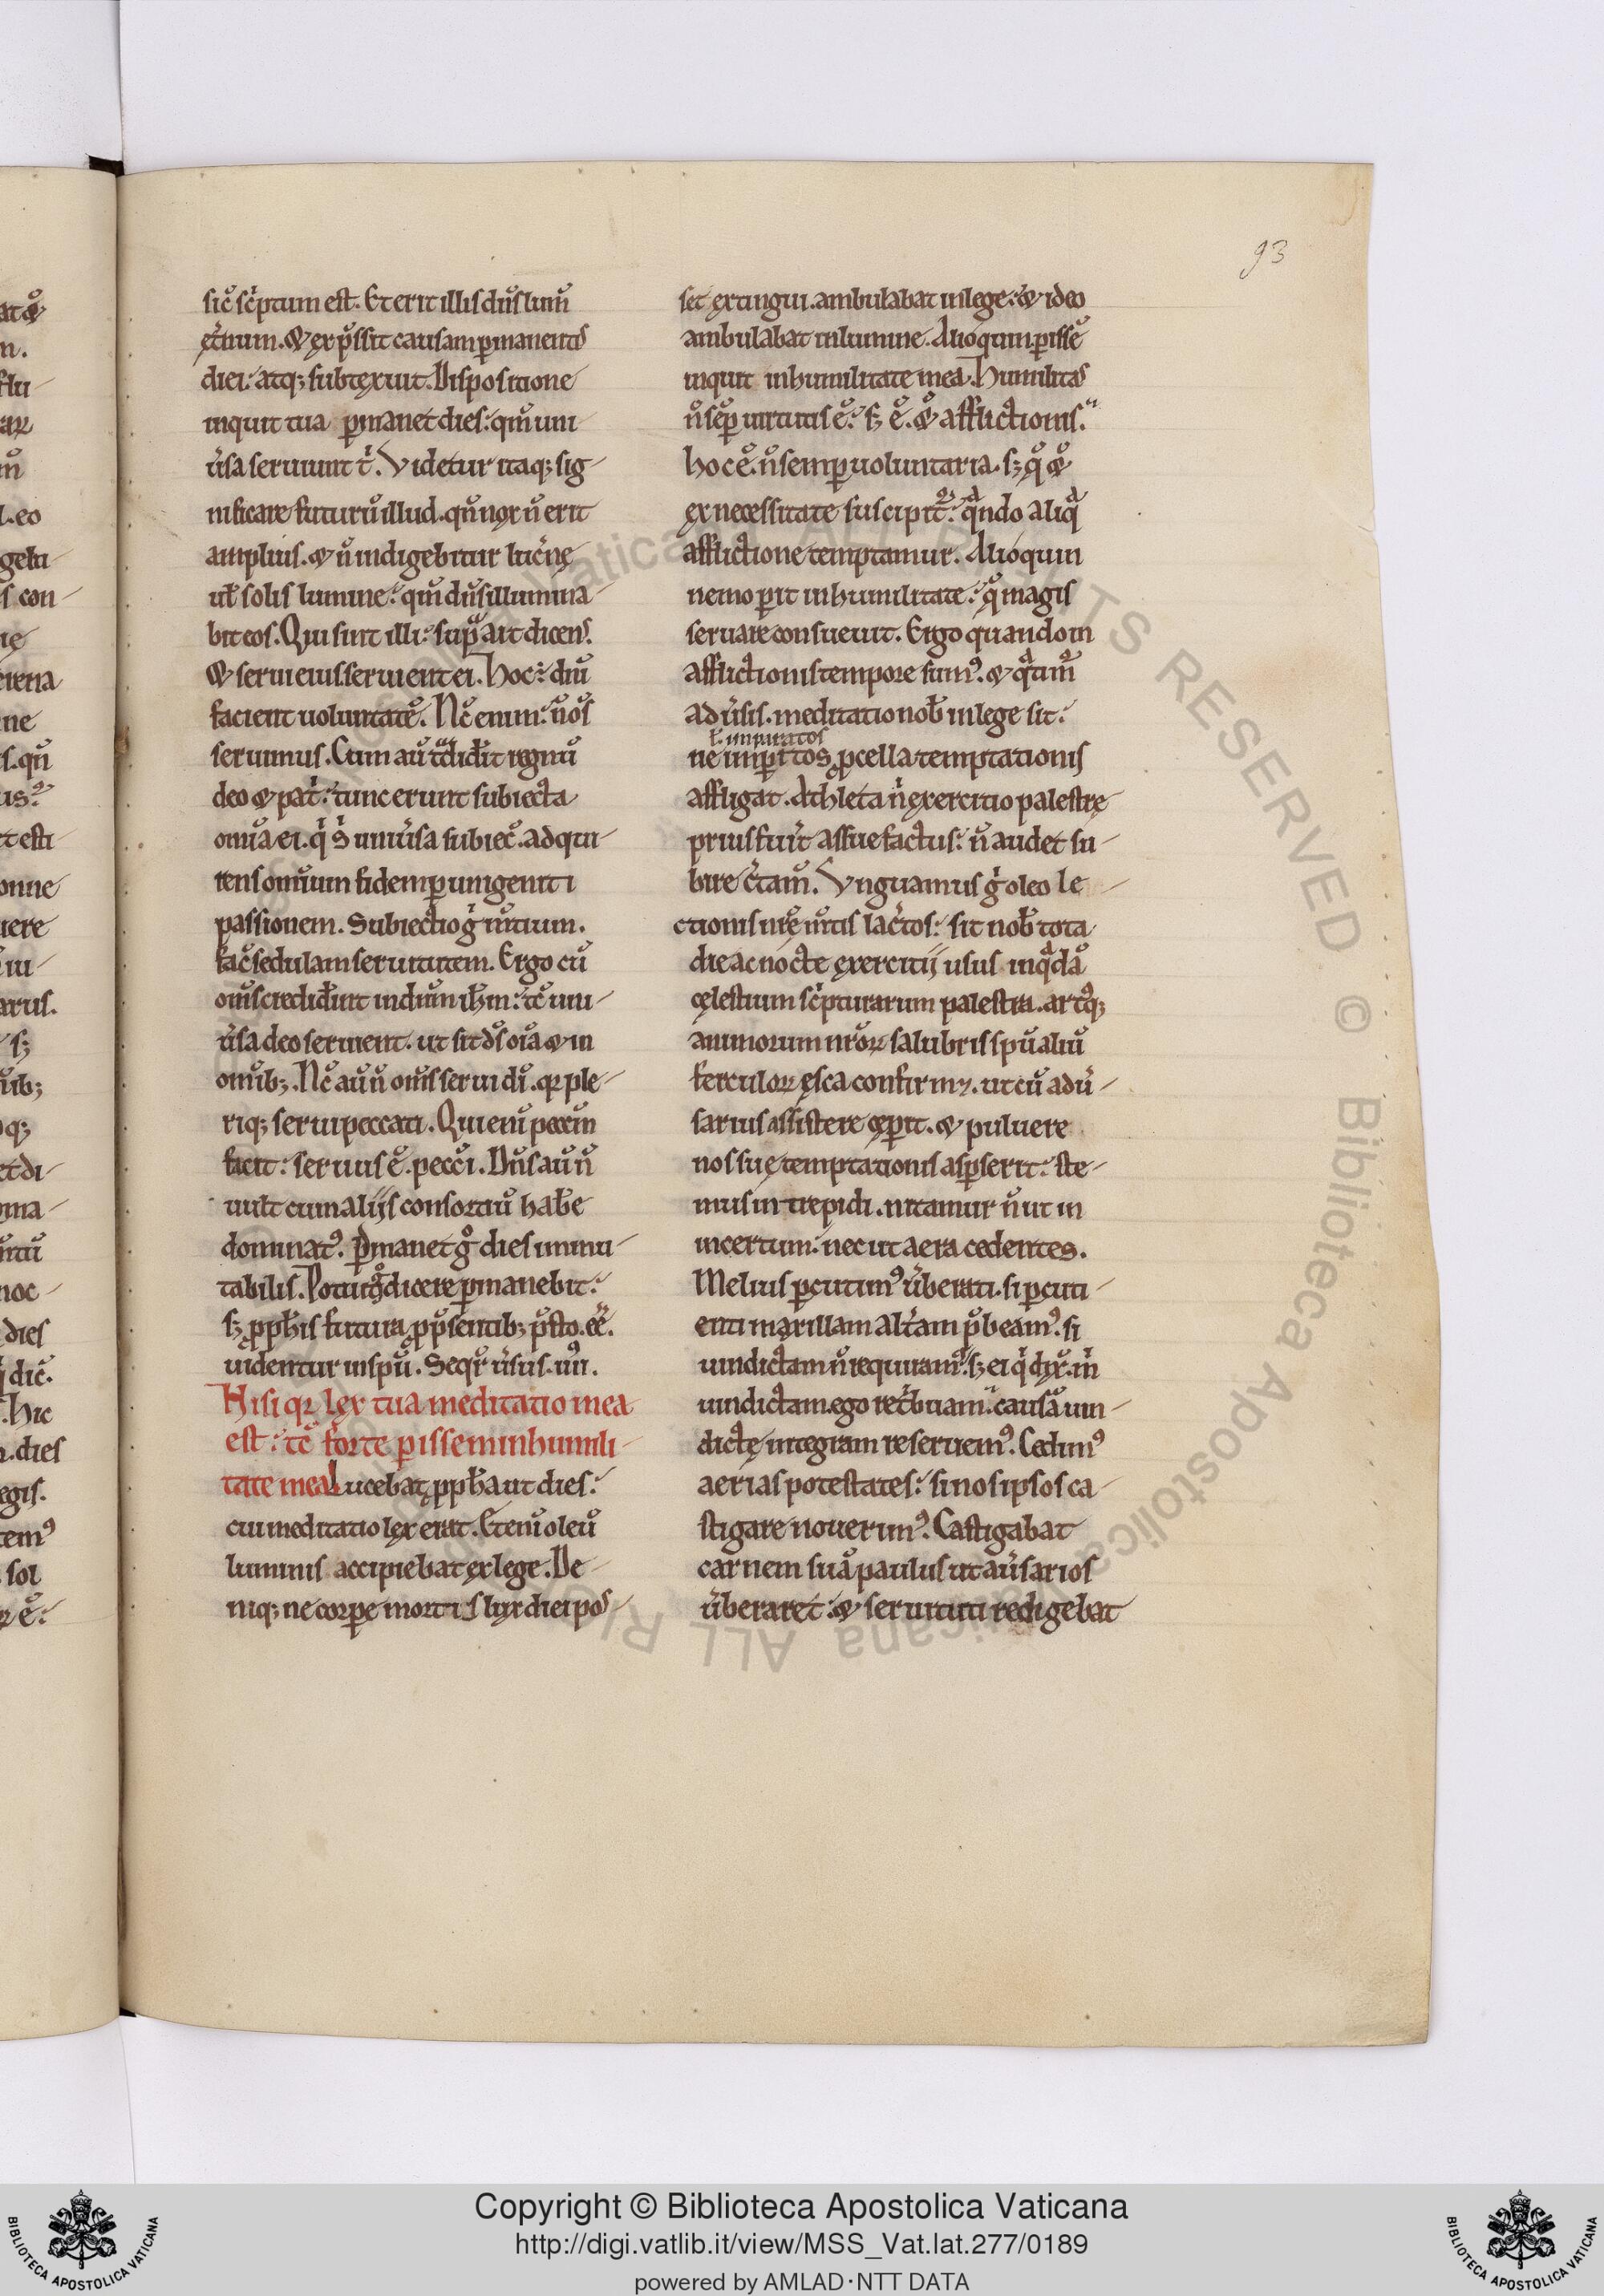 93
sic̄ sc̓ptum est. Et erit illis dn̄s lum̄
ęt̓num. & exp̄ssit causam ꝑmanentis
diei: atq; subtexuit. Dispositione
inquit tua ꝑmanet dies: qm̄ uni
ūsa seruiunt t̓. Videtur itaq; sig-
nificare futurū illud. qn̄ nox n̄ erit
amplius. & n̄ indigebitur luc̓nę
ul̄ solis lumine: qm̄ dn̄s illumina-
bit eos. Qui sint illi: supͣ ait dicens.
& serui eius seruient ei. Hoc ÷ diu̅
facient uoluntatē. Nc̄ enim: n̄ os̄
seruimus. Cum au t͛diđit regnū
deo & pat̓: tunc erunt subiecta
omīa ei. q̓ S̓ uniūsa subiec̄. adqui-
rens omīum fidem ꝑ unigeniti
passionem. Subiectio ḡ nr̄tium.
fac̄ sedulam seruitutem. Ergo cū
om̄s credidīnt in dn̄m ih̄m: tc̄ uni-
ūsa deo seruient. ut sit ds̄ oīa & in
omīb;. Nc̄ au n̄ om̄s serui dī. qꝛ ple-
riq; serui peccati. Qui enī peccm̄
facit: seruus ē. pecc̄i. Dn̄s au n̄
uult cum alijs consortiū hab̄e
dominatꝰ. Ꝑmanet g° dies inmu-
tabilis. Potuit g° dicere ꝑmanebit:
s; ꝓph̄is futura ꝓ p̄sentib; p̄sto. ee̅.
uidentur in spū. Seqr̄ ūsus. iiii.
Nisi qꝛ lex tua meditatio mea
est: tc̄ forte ꝑissem in humili-
tate mea Lucebat ꝓph̄a ut dies:
cui meditatio lex erat. Etenī oleū
luminis accipiebat ex lege. De-
niq; ne corpe mortis lux diei pos-
set extingui. ambulabat in lege: & ideo
ambulabat in lumine. Alioquin ꝑissē
inquit in humilitate mea. Humilitas
n̄ sēp uirtutis ē: s; ē. & afflictionis.
hoc ē. n̄ semꝑ uoluntaria. s; q° &
ex necessitate suscipit᷑: qͣndo aliqͣ
afflictione temptamur. Alioquin
nemo ꝑit in humilitate: qͣ magis
seruare consueuit. Ergo quando in
afflictionis tempore sumꝰ. & qͣtim᷑
adūsis. meditatio nob̄ in lege sit:
ł. imparatos
ne imꝑitos ꝓcella temptationis
affligat. Athleta n̓ exercitio palestrę
prius fuīt assuefactus: n̄ audet su-
bire c̓tam̄. Vnguamus ḡ oleo le-
ctionis nr̄ę m̄tis lac̓tos: sit nob̄ tota
die ac nocte exercitij usus inqͣdā
cęlestium sc̓pturarum palestra. artꝰq;
animorum nr̄oꝝ salubris spūaliū
ferculoꝝ esca confirmꝫ. ut cū adū-
sarius assistere cęꝑit. & puluere
nos suę temptationis asꝑserit: ste-
mus intrepidi. nitamur n̄ ut in
incertum: nec ut aera cedentes.
Melius ꝑcutimꝰ ūberati. si ꝑcuti-
enti maxillam alt̓am p̄beamꝰ. si
uindictam n̄ requiramꝰ: s; ei q̓ dix̄. m̓
uindictam. ego ret̓buam: causā uin-
dictę integram reseruemꝰ. Cedimꝰ
aerias potestates: si nos ipsos ca-
stigare nouerimꝰ. Castigabat
carnem suā paulus ut aūsarios
ūberaret: & seruituti redigebat
Copyright © Biblioteca Apostolica Vaticana
http://digi.vatlib.it/view/MSS_Vat.lat.277/0189
powered by AMLAD·NTT DATA